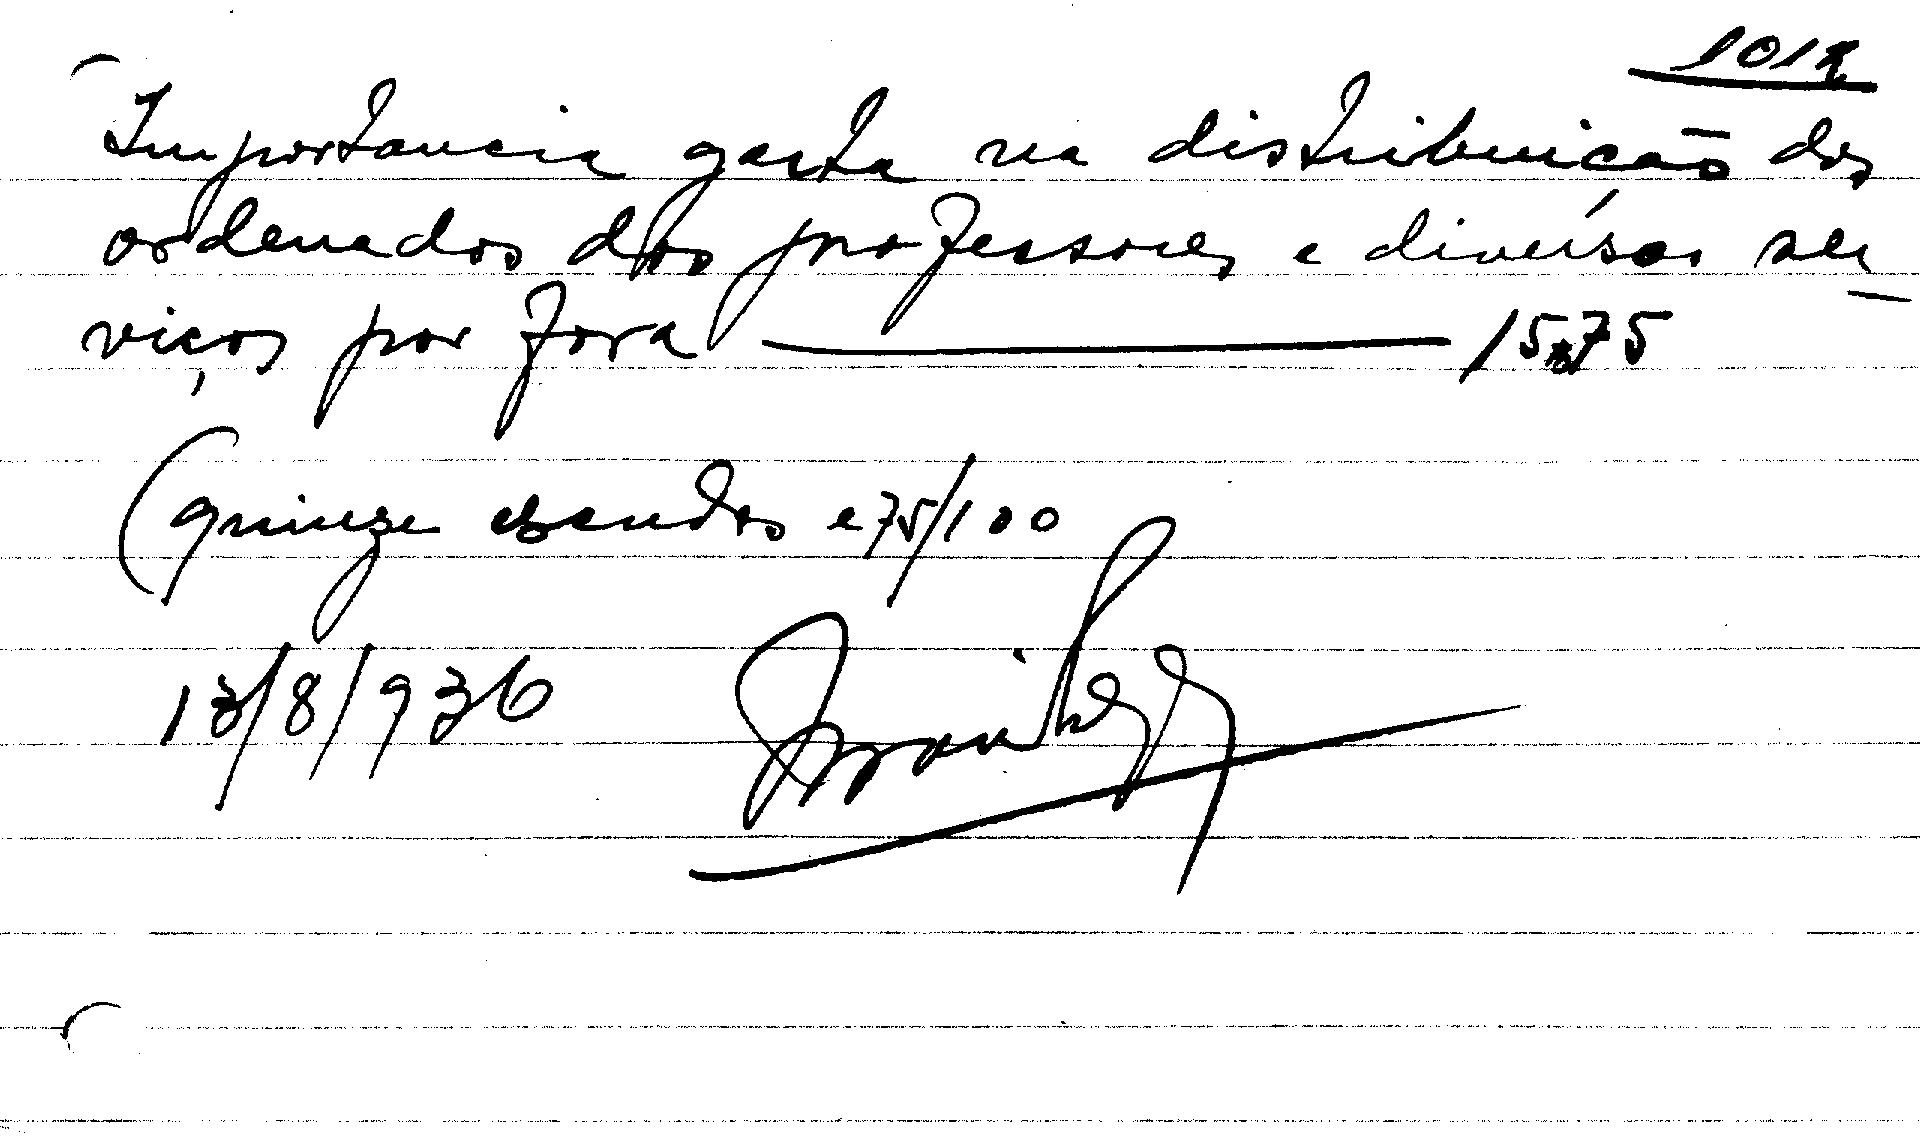 Importancia gasta na distribuição dos
ordenados dos professores e diversos ser
viços por fora — 15$75
(quinze escudos e 75/100
13/8/936